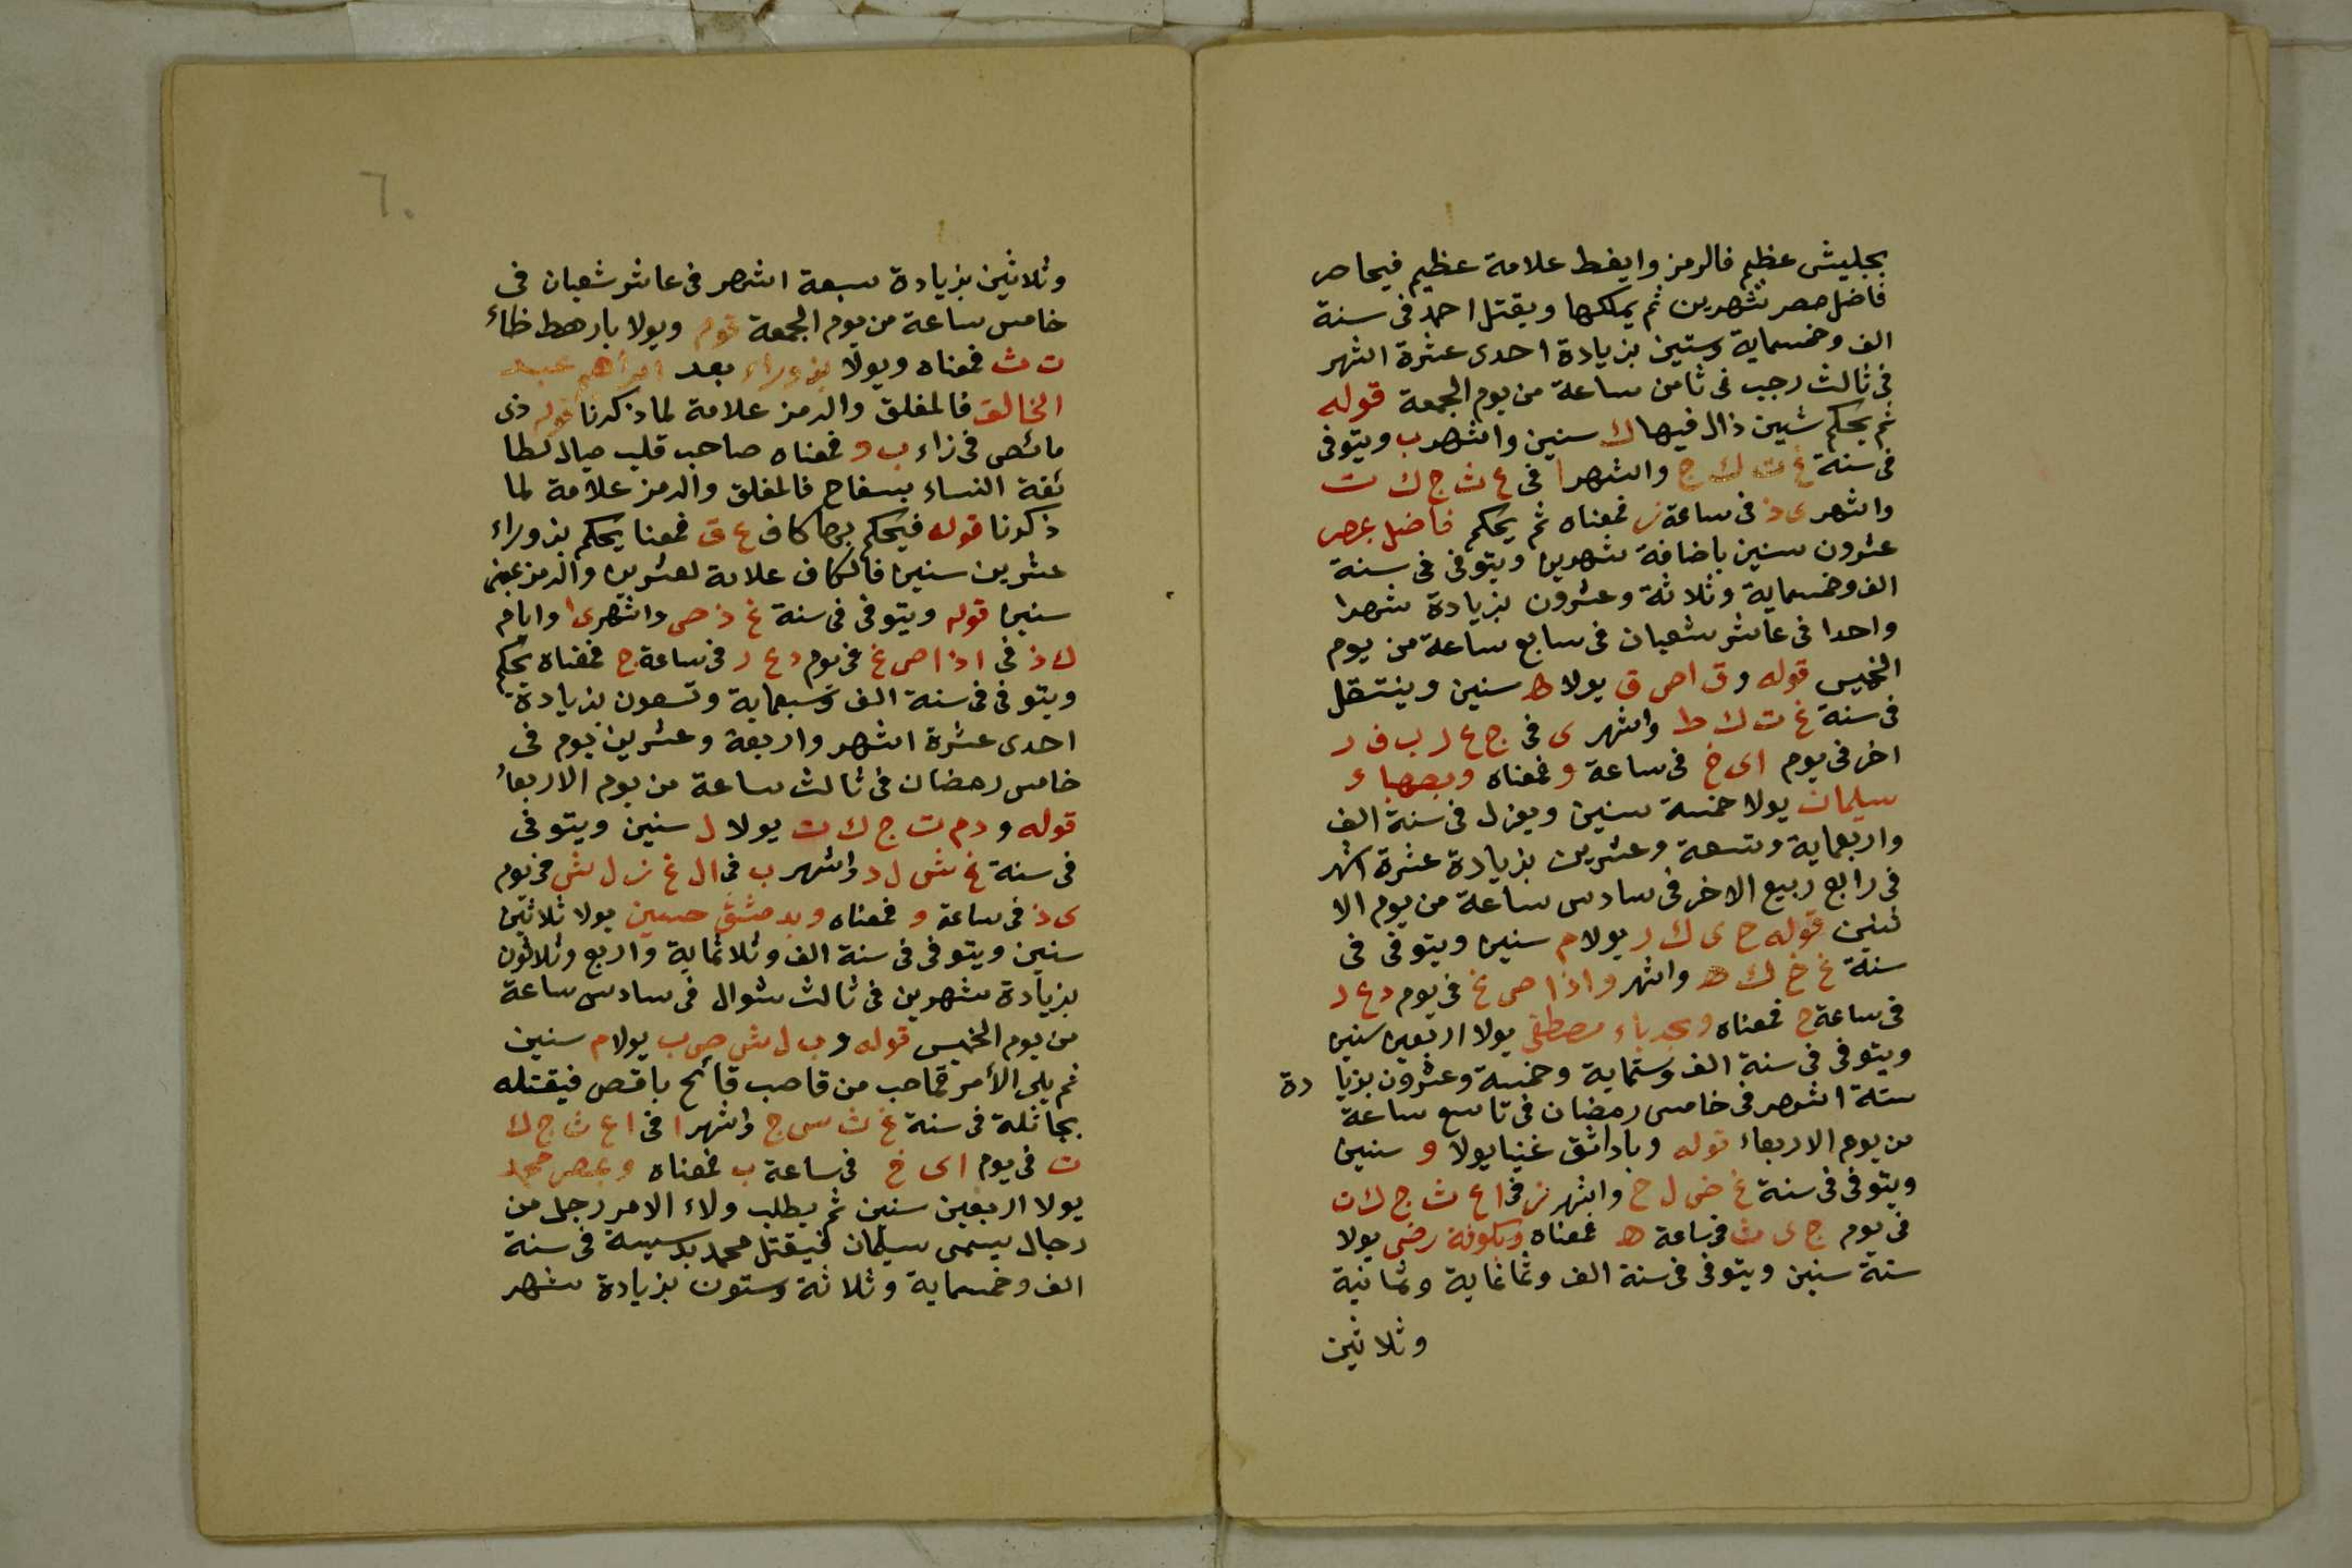 بجليش عظيم فالرمز وايفط علامة عظيم فيحاصر
فاضل مصر شهرين ثم يملكها ويقتل احمد فى سنة
الف وخمسماية وستين بزيادة احدى عشرة اشهر
فى ثالث رجب فى ثامن ساعة من يوم الجمعة قوله
ثم يحكم شين ذال فيها ك سنين واشهر ب ويتوفى
فى سنة غ ث ك ج واشهر ا فى ع ث ج ك ت
واشهر ى ذ فى ساعة ز فمعناه ثم يحكم فاضل بمصر
عشرون سنين باضافة شهرين ويتوفى فى سنة
الف وخمسماية وثلاثة وعشرون بزيادة شهرا
واحدا فى عاشر شعبان فى سابع ساعة من يوم
الخميس قوله وق اص ق يولا ه سنين وينتقل
فى سنة غ ت ك ط واشهر ى فى ج ع ر ب ف ر
اخر فى يوم اى خ فى ساعة و فمعناه وبصهباء
سليمان يولا خمسة سنين ويعزل فى سنة الف
واربعماية وتسعة وعشرين بزيادة عشرة اشهر
فى رابع ربيع الاخر فى سادس ساعة من يوم الا
ثنين قوله ح ى ك ر يولا م سنين ويتوفى فى
سنة غ خ ك ه واشهر و اذا ص غ فى يوم د ع ر
فى ساعة ح فمعناه مصطفى يولا اربعين سنين
ويتوفى فى سنة الف وستماية وخمسة وعشرون بزيا دة
ستة اشهر فى خامس رمضان فى تاسع ساعة
من يوم الاربعاء قوله وباداثق غنيا يولا و سنين
ويتوفى فى سنة غ ض ل ح واشهر ز فى ا ع ث ج ك ت
فى يوم ج ى ث فى ساعة ه فمعناه وبكوفة رضى يولا
ستة سنين ويتوفى فى سنة الف وثمانماية وثمانية
وثلاثين
٦٠
وثلاثين بزيادة سبعة اشهر فى عاشر شعبان فى
خامس ساعة من يوم الجمعة قوله ويولا بارهط ظاء
ت ث فمعناه ويولا بزوراء بعد ابراهيم عبد
الخالق فالمغلق والرمز علامة لما ذكرنا قوله ذى
مائص فى زاء ب و فمعناه صاحب قلب ميال لطا
ئفة النساء بسفاح فالمغلق والرمز علامة لما
ذكرنا قوله فيحكم بها كاف ع ق فمعنا يحكم بزوراء
عشرين سنين فالكاف علامة لعشرين والرمز بمعنى
سنين قوله ويتوفى فى سنة غ ذ ص واشهر ى ا وايام
ك ذ فى اذا ص غ فى يوم د ع ر فى ساعة ج فمعناه يحكم
ويتوفى فى سنة الف وسبعماية وتسعون بزيادة
احدى عشرة اشهر واربعة وعشرين يوم فى
خامس رمضان فى ثالث ساعة من يوم الاربعاء
قوله و دم ت ج ك ت يولا ل سنين ويتوفى
فى سنة غ ش ل د واشهر ب فى ال غ ز ل ش فى يوم
ى ذ فى ساعة و فمعناه وبدمشق حسين يولا ثلاثين
سنين ويتوفى فى سنة الف وثلاثماية واربع وثلاثون
بزيادة شهرين فى ثالث شوال فى سادس ساعة
من يوم الخميس قوله و ب ل ش ص ب يولا م سنين
ثم يلى الأمر قماحب من قاصب قائح باقص فيقتله
بجائلة فى سنة غ ث س ج واشهر ا فى ا ع ث ج ك
ت فى يوم اى خ فى ساعة ب فمعناه وبمصر محمد
يولا اربعين سنين ثم يطلب ولاء الامر رجل من
رجال يسمى سليمان فيقتل محمد بدسيسة فى سنة
الف وخمسماية وثلاثة وستون بزيادة شهر